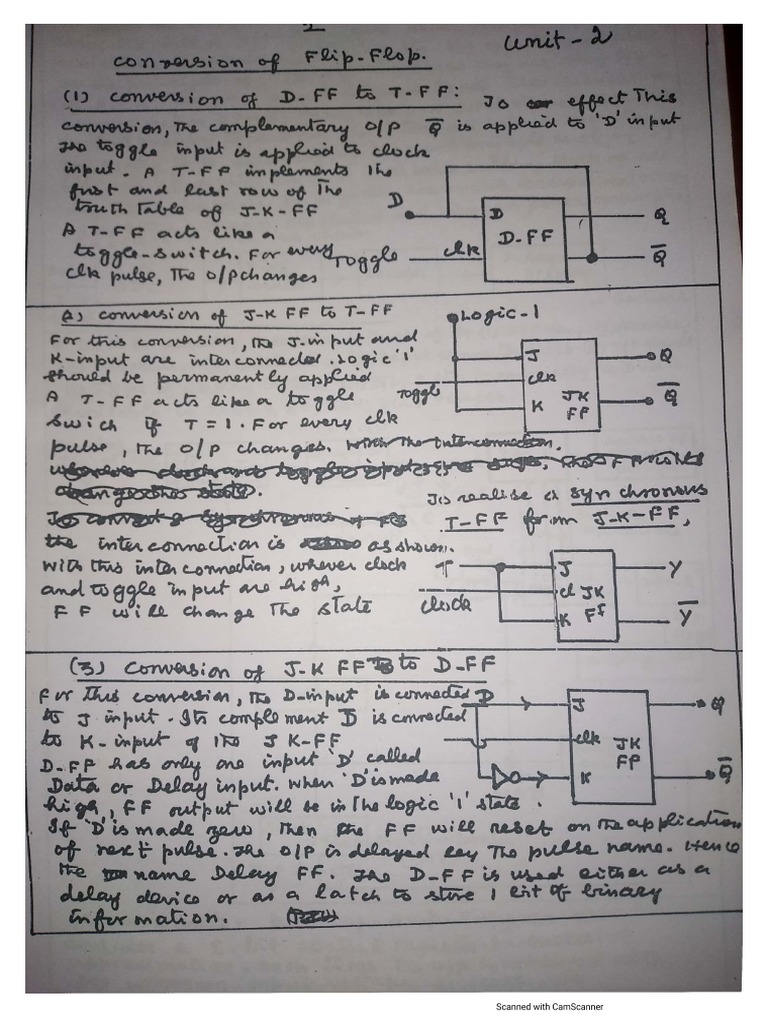 Unit-2
Conversion of Flip-Flop.
(1) Conversion of D-FF to T-FF: To effect This
conversion, The complementary O/P Q̅ is applied to 'D' input
The toggle input is applied to clock
input. A T-FF implements the
first and last row of The
truth Table of J-K-FF
A T-FF acts like a
toggle-switch. For every
clk pulse, The O/P changes
D
Toggle
clk
D
D-FF
Q
Q̅
2) Conversion of J-K FF to T-FF
For this conversion, the J-input and
K-input are interconnected. Logic '1'
should be permanently applied
A T-FF acts like a toggle
Swich if T=1. For every clk
pulse, the O/P changes. With the interconnection,
Logic-1
Toggle
J
clk
K
JK
FF
Q
Q̅
To realise a synchronous
T-FF form J-K-FF,
the interconnection is as shown.
With this interconnection, whever clock
and toggle input are high,
FF will change The state
T
clock
J
cl
K
JK
FF
Y
Y̅
(3) Conversion of J-K FF to D-FF
For This conversion, the D-input is connected
to J input. Its complement D̅ is connected
to K-input of the JK-FF
D-FF has only one input 'D' called
Data or Delay input. When 'D' is made
high, FF output will be in the logic '1' state.
If 'D' is made zero, Then the FF will reset on the application
of next pulse. The O/P is delayed by The pulse name. Hence
the name Delay FF. The D-FF is used either as a
delay device or as a latch to store 1 bit of binary
information.
D
J
clk
K
JK
FF
Q
Q̅
Scanned with CamScanner